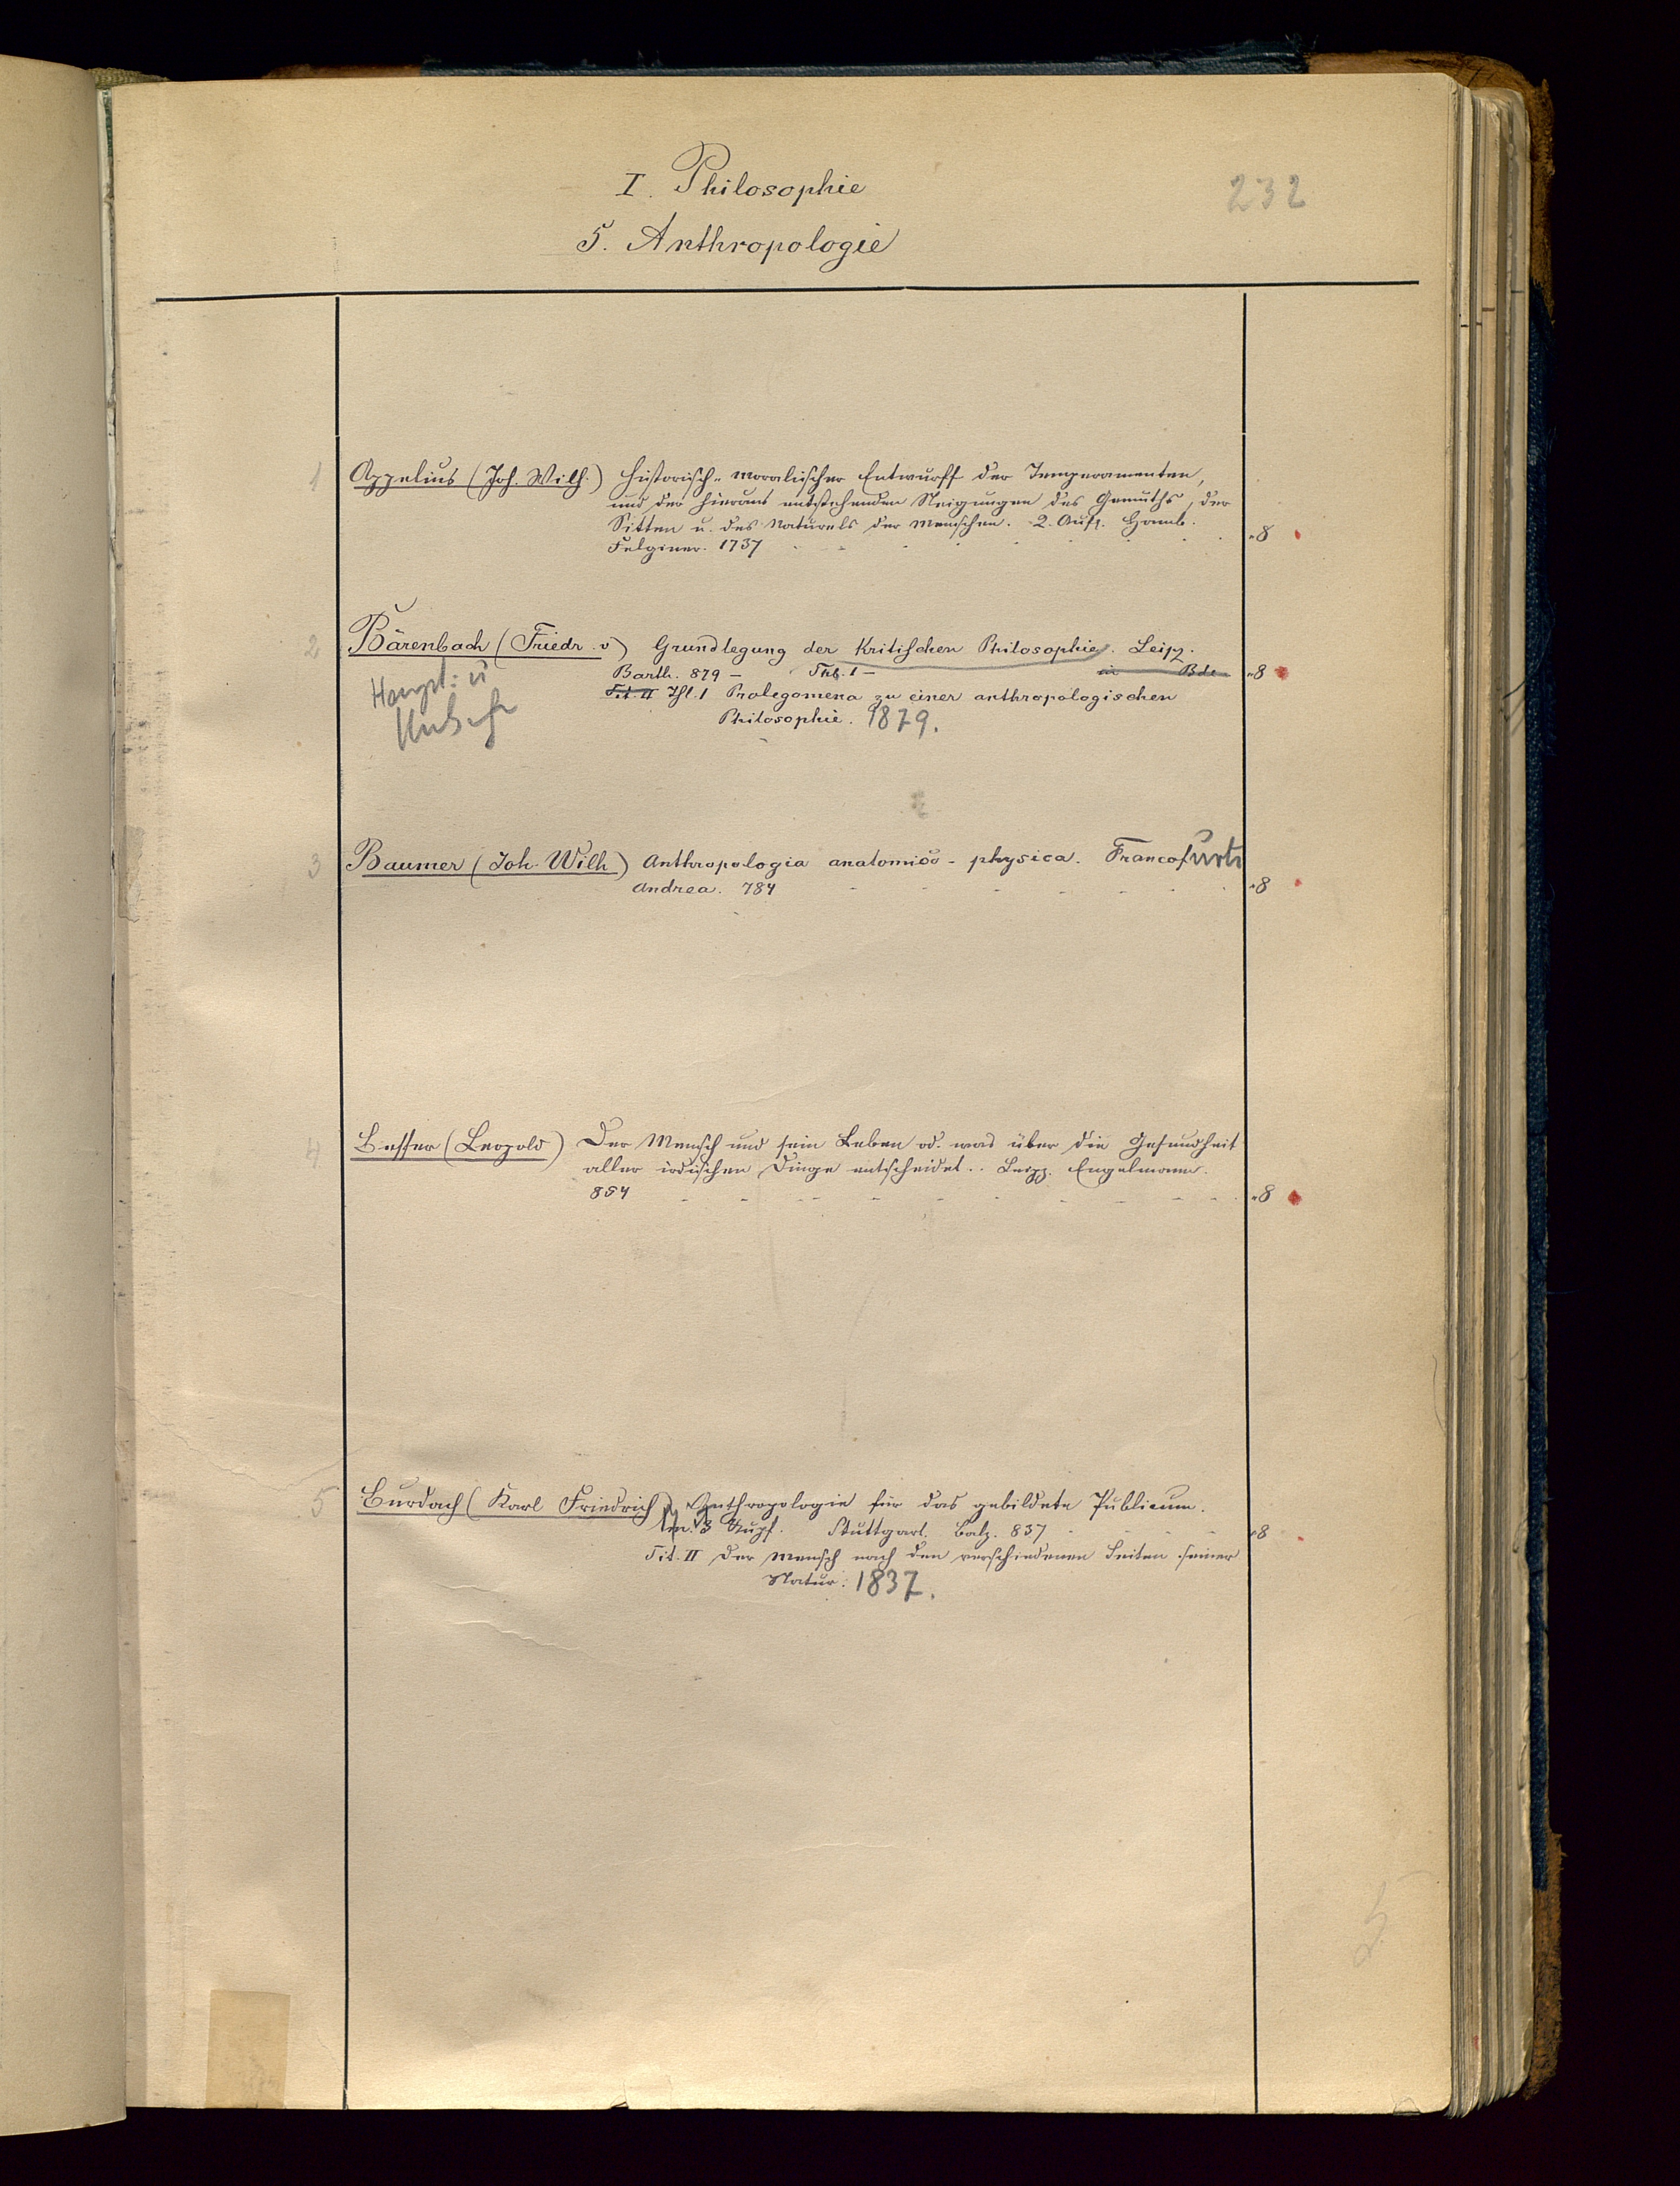 I. Philosophie
232
5. Anthropologie
1 Appelius (Joh. Wilh.) Historisch-moralischer Entwurff der Temperamenten,
und der hieraus entstehenden Neigungen des Gemüths, der
Sitten u. des Naturels der Menschen. 2. Aufl. Hamb.
Felginer. 1737 8
2 Bärenbach (Friedr. v) Grundlegung der Kritischen Philosophie. Leipz.
Barth. 879 – Thl. 1 – in Bde 8
Haupt: u
Tit. II Thl. 1 Prolegomena zu einer anthropologischen
Philosophie. 1879.
3 Baumer (Joh. Wilh) Anthropologia anatomico-physica. Francofurti
Andrea. 784 8
4 Besser (Leopold) Der Mensch und sein Leben od. was über die Gesundheit
aller irdischen Dinge entscheidet.. Leipz. Engelmann.
854 8
5 Burdach (Karl Friedrich) Anthropologie für das gebildete Publicum.
M. 3 Kupf. Stuttgart. Balz. 837 8
Tit. II Der Mensch nach den verschiedenen Seiten seiner
Natur. 1837.
5